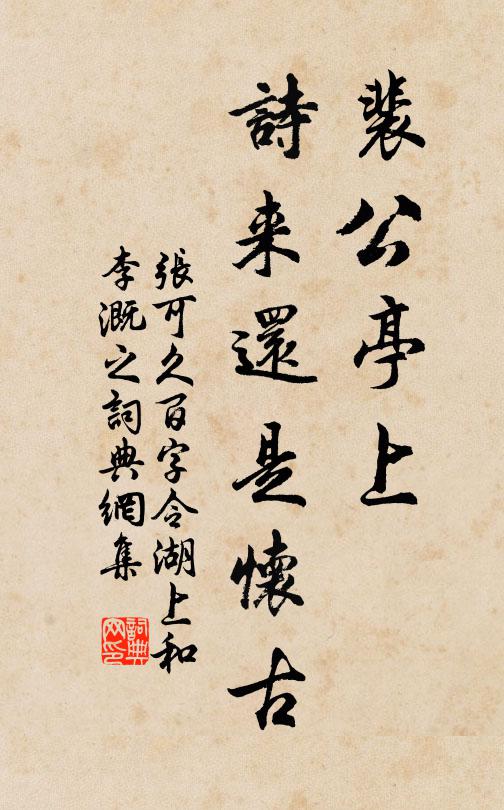 裴公亭上
詩来還是懷古
張可久百字令湖上和
李溉之詞典網集
詞典
网印